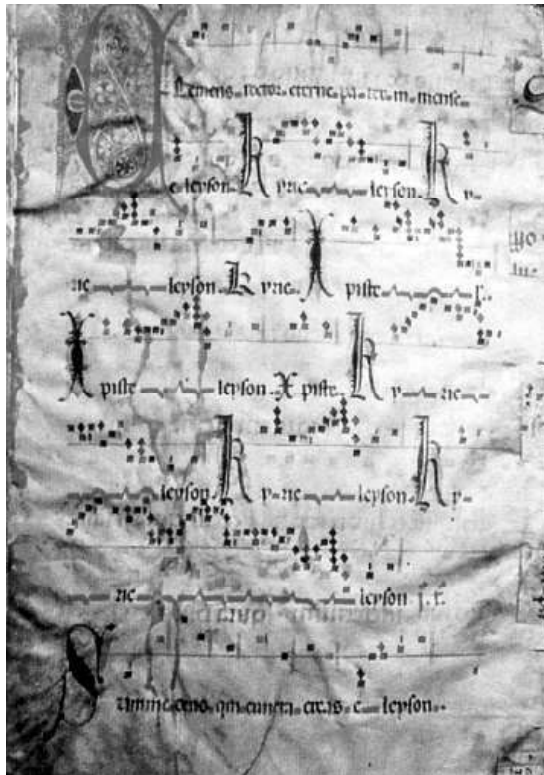 Clemens rector eterne pa ter in mense
e leyson K yrie leyson K y
rie leyson K yrie X piste
X piste leyson X piste K y rie
leyson K y rie leyson K y
rie leyson
qui cuncta creas e leyson